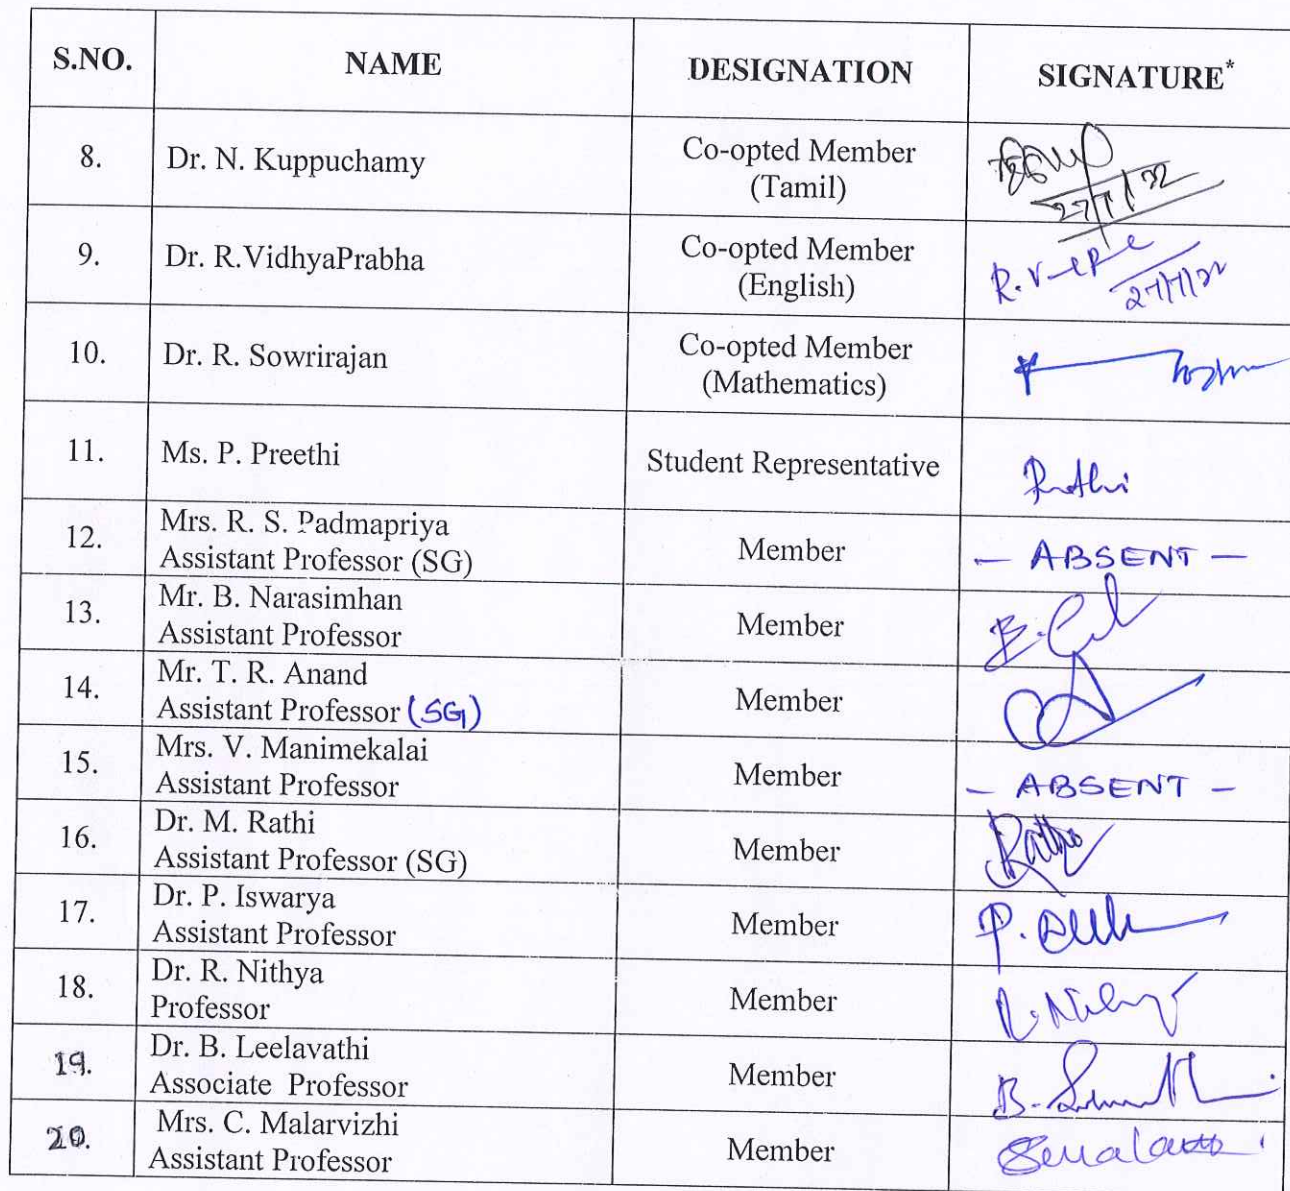 S.NO. NAME DESIGNATION SIGNATURE*
8. Dr. N. Kuppuchamy Co-opted Member
(Tamil)
27/7/22
9. Dr. R.VidhyaPrabha Co-opted Member
(English)
27/7/22
10. Dr. R. Sowrirajan Co-opted Member
(Mathematics)
11. Ms. P. Preethi Student Representative
12. Mrs. R. S. Padmapriya
Assistant Professor (SG) Member – ABSENT –
13. Mr. B. Narasimhan
Assistant Professor Member
14. Mr. T. R. Anand
Assistant Professor (SG) Member
15. Mrs. V. Manimekalai
Assistant Professor Member – ABSENT –
16. Dr. M. Rathi
Assistant Professor (SG) Member
17. Dr. P. Iswarya
Assistant Professor Member
18. Dr. R. Nithya
Professor Member
19. Dr. B. Leelavathi
Associate Professor Member
20. Mrs. C. Malarvizhi
Assistant Professor Member